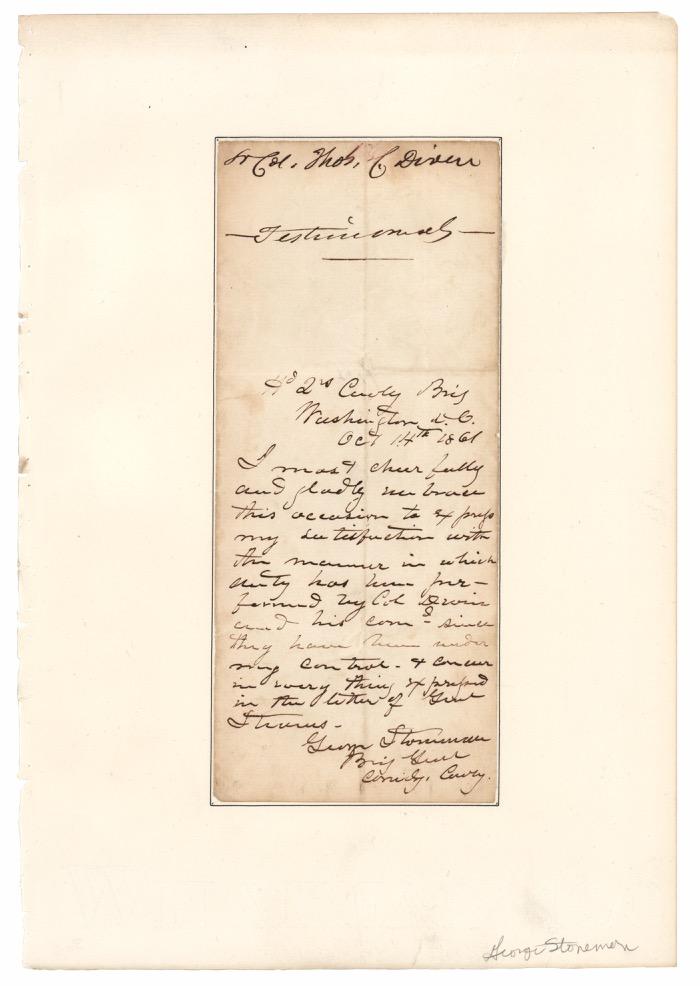 Lt Col. Thos. C Devin
— Testimonials —
Hd Qrs Cavly Brig
Washington D.C.
Oct 14th 1861
I most cheerfully
and gladly embrace
this occasion to express
my satisfaction with
the manner in which
duty has been per-
formed by Col Devin
and his comd since
they have been under
my control - & concur
in every thing expressed
in the letter of Genl
George Stoneman
Brig Genl
Comdg. Cavly.
George Stoneman